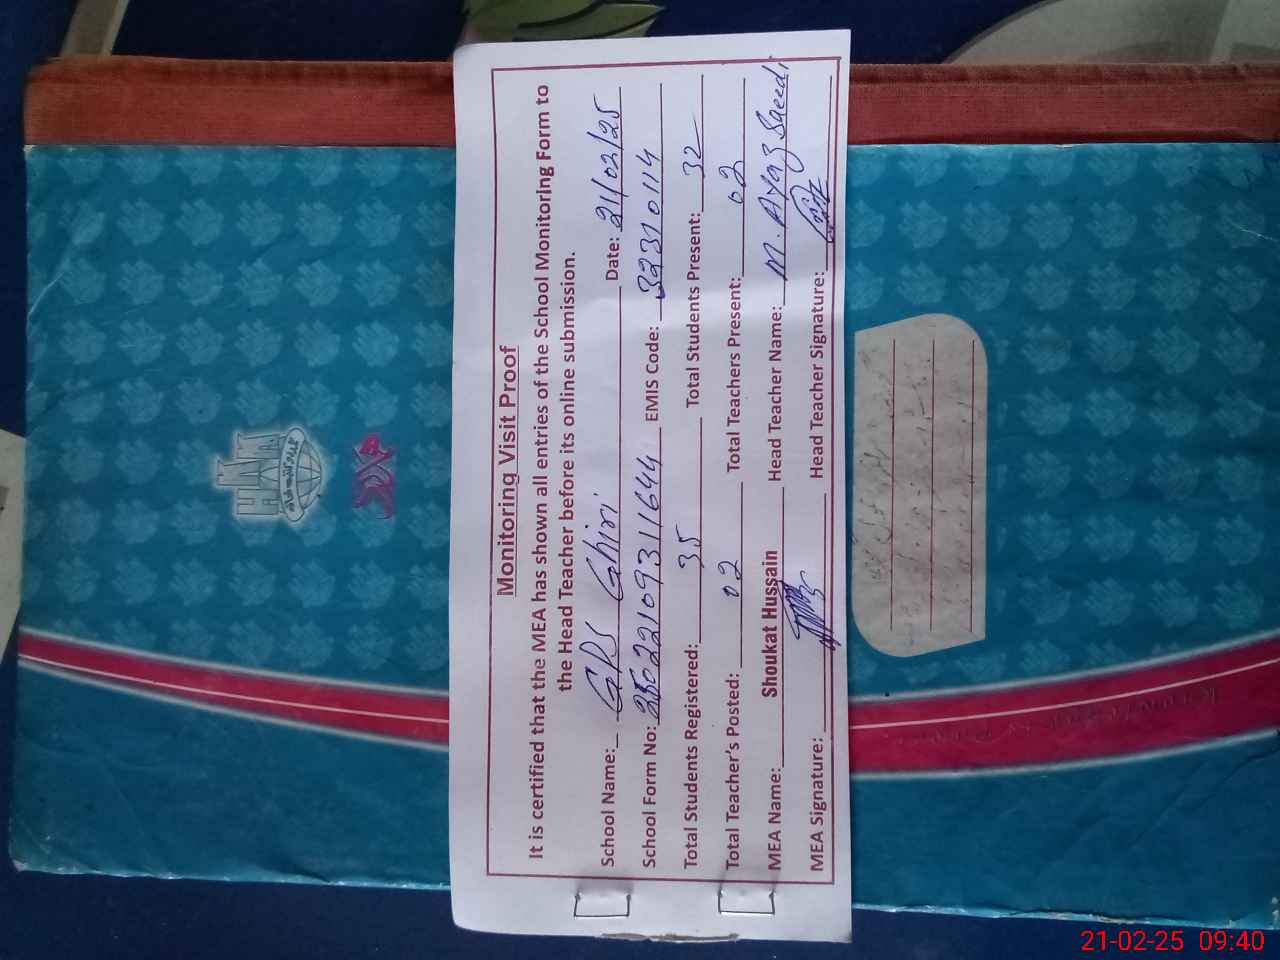 Monitoring Visit Proof
It is certified that the MEA has shown all entries of the School Monitoring Form to
the Head Teacher before its online submission.
School Name: GPS Ghiri Date: 21/02/25
School Form No: 25022109311644 EMIS Code: 32310114
Total Students Registered: 35 Total Students Present: 32
Total Teacher's Posted: 02 Total Teachers Present: 02
MEA Name: Shoukat Hussain Head Teacher Name: M. Ayaz Saeedi
MEA Signature: Head Teacher Signature:
21-02-25 09:40